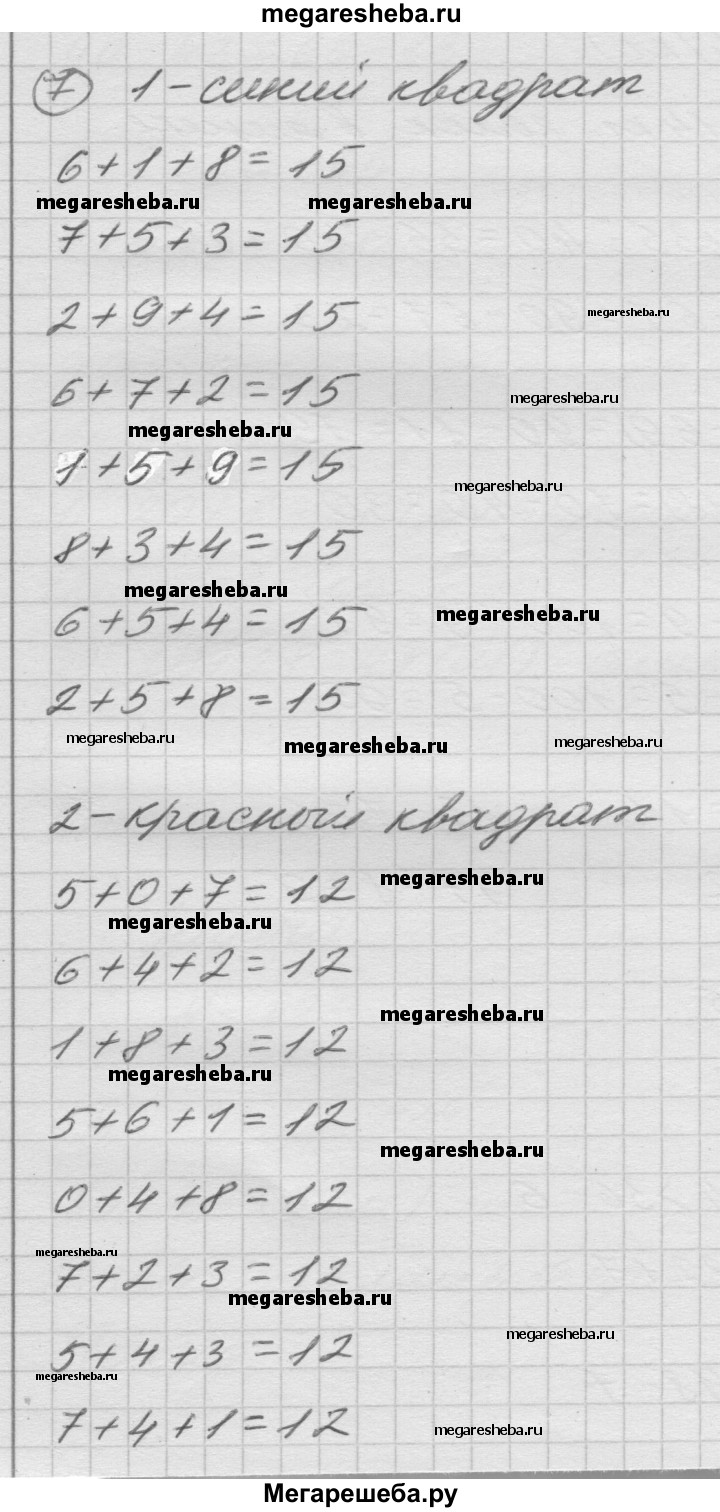 megaresheba.ru
7 1-синий квадрат
6+1+8=15
megaresheba.ru megaresheba.ru
7+5+3=15
2+9+4=15
megaresheba.ru
6+7+2=15
megaresheba.ru
megaresheba.ru
1+5+9=15
megaresheba.ru
8+3+4=15
megaresheba.ru
6+5+4=15
megaresheba.ru
2+5+8=15
megaresheba.ru megaresheba.ru megaresheba.ru
2-красный квадрат
5+0+7=12
megaresheba.ru
megaresheba.ru
6+4+2=12
megaresheba.ru
1+8+3=12
megaresheba.ru
5+6+1=12
megaresheba.ru
0+4+8=12
megaresheba.ru
7+2+3=12
megaresheba.ru
megaresheba.ru
5+4+3=12
megaresheba.ru
7+4+1=12
megaresheba.ru
Мегарешеба.ру